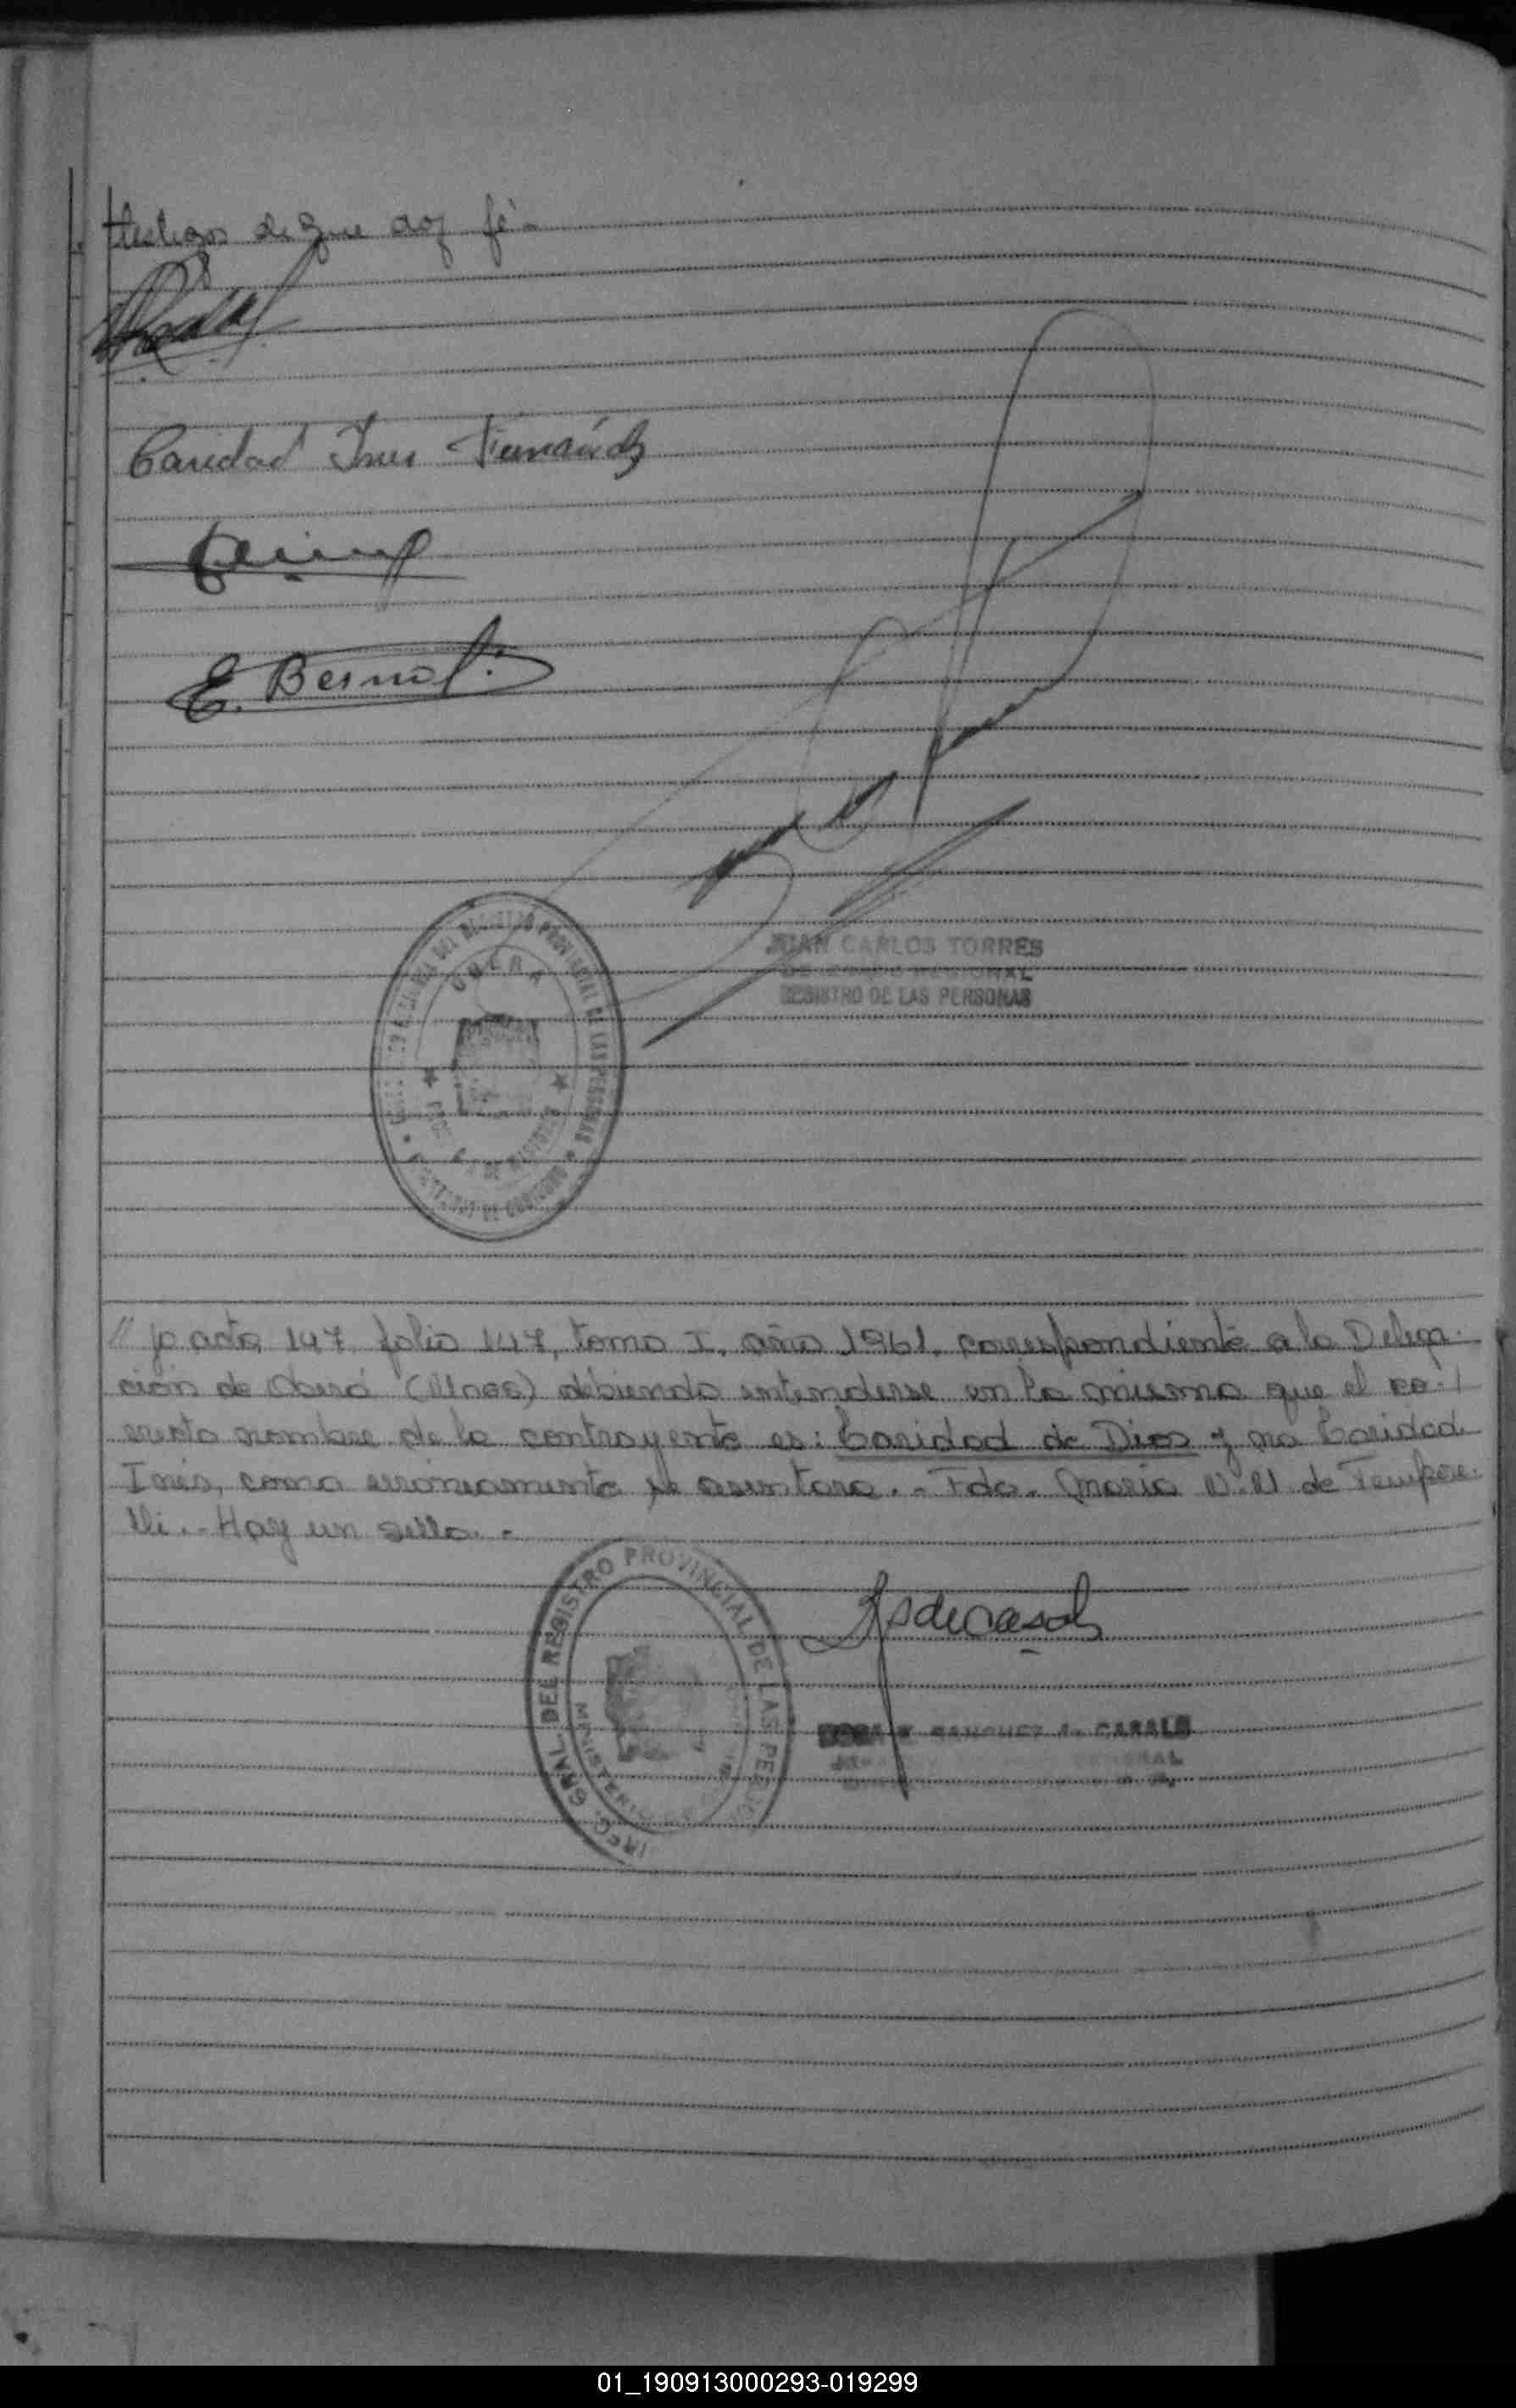 testigos de que doy fé.-
Caridad Ines Fernández
E. Bernal.
JUAN CARLOS TORRES
REGISTRO DE LAS PERSONAS
OBERA
DEL REGISTRO PROVINCIAL DE LAS PERSONAS
DE GOBIERNO
DE MISIONES
// jo acta 147, folio 147, tomo I, año 1961, correspondiente a la Delega-
ción de Oberá (Mnes) debiendo entenderse en la misma que el co-
rrecto nombre de la contrayente es: Caridad de Dios y no Caridad
Inés, como erróneamente se asentara. - Fdo. María N. de
Hay un sello. -
GRAL DEL REGISTRO PROVINCIAL DE LAS
MINISTERIO
SANCHEZ CASALS
01_190913000293-019299